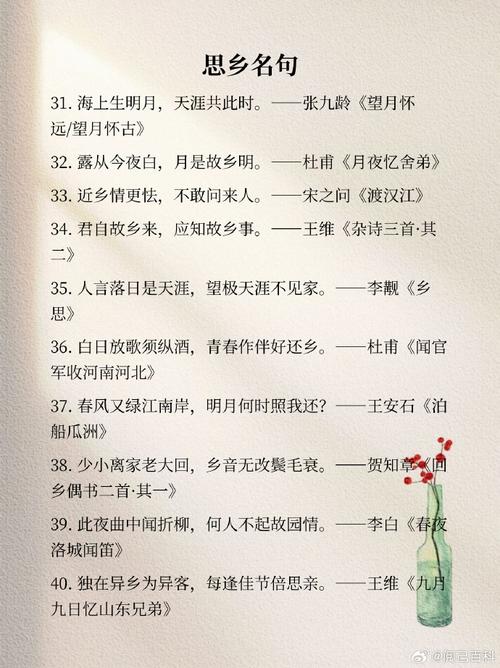 思乡名句
31. 海上生明月，天涯共此时。——张九龄《望月怀
远/望月怀古》
32. 露从今夜白，月是故乡明。——杜甫《月夜忆舍弟》
33. 近乡情更怯，不敢问来人。——宋之问《渡汉江》
34. 君自故乡来，应知故乡事。——王维《杂诗三首·其
二》
35. 人言落日是天涯，望极天涯不见家。——李觏《乡
思》
36. 白日放歌须纵酒，青春作伴好还乡。——杜甫《闻官
军收河南河北》
37. 春风又绿江南岸，明月何时照我还？——王安石《泊
船瓜洲》
38. 少小离家老大回，乡音无改鬓毛衰。——贺知章《回
乡偶书二首·其一》
39. 此夜曲中闻折柳，何人不起故园情。——李白《春夜
洛城闻笛》
40. 独在异乡为异客，每逢佳节倍思亲。——王维《九月
九日忆山东兄弟》